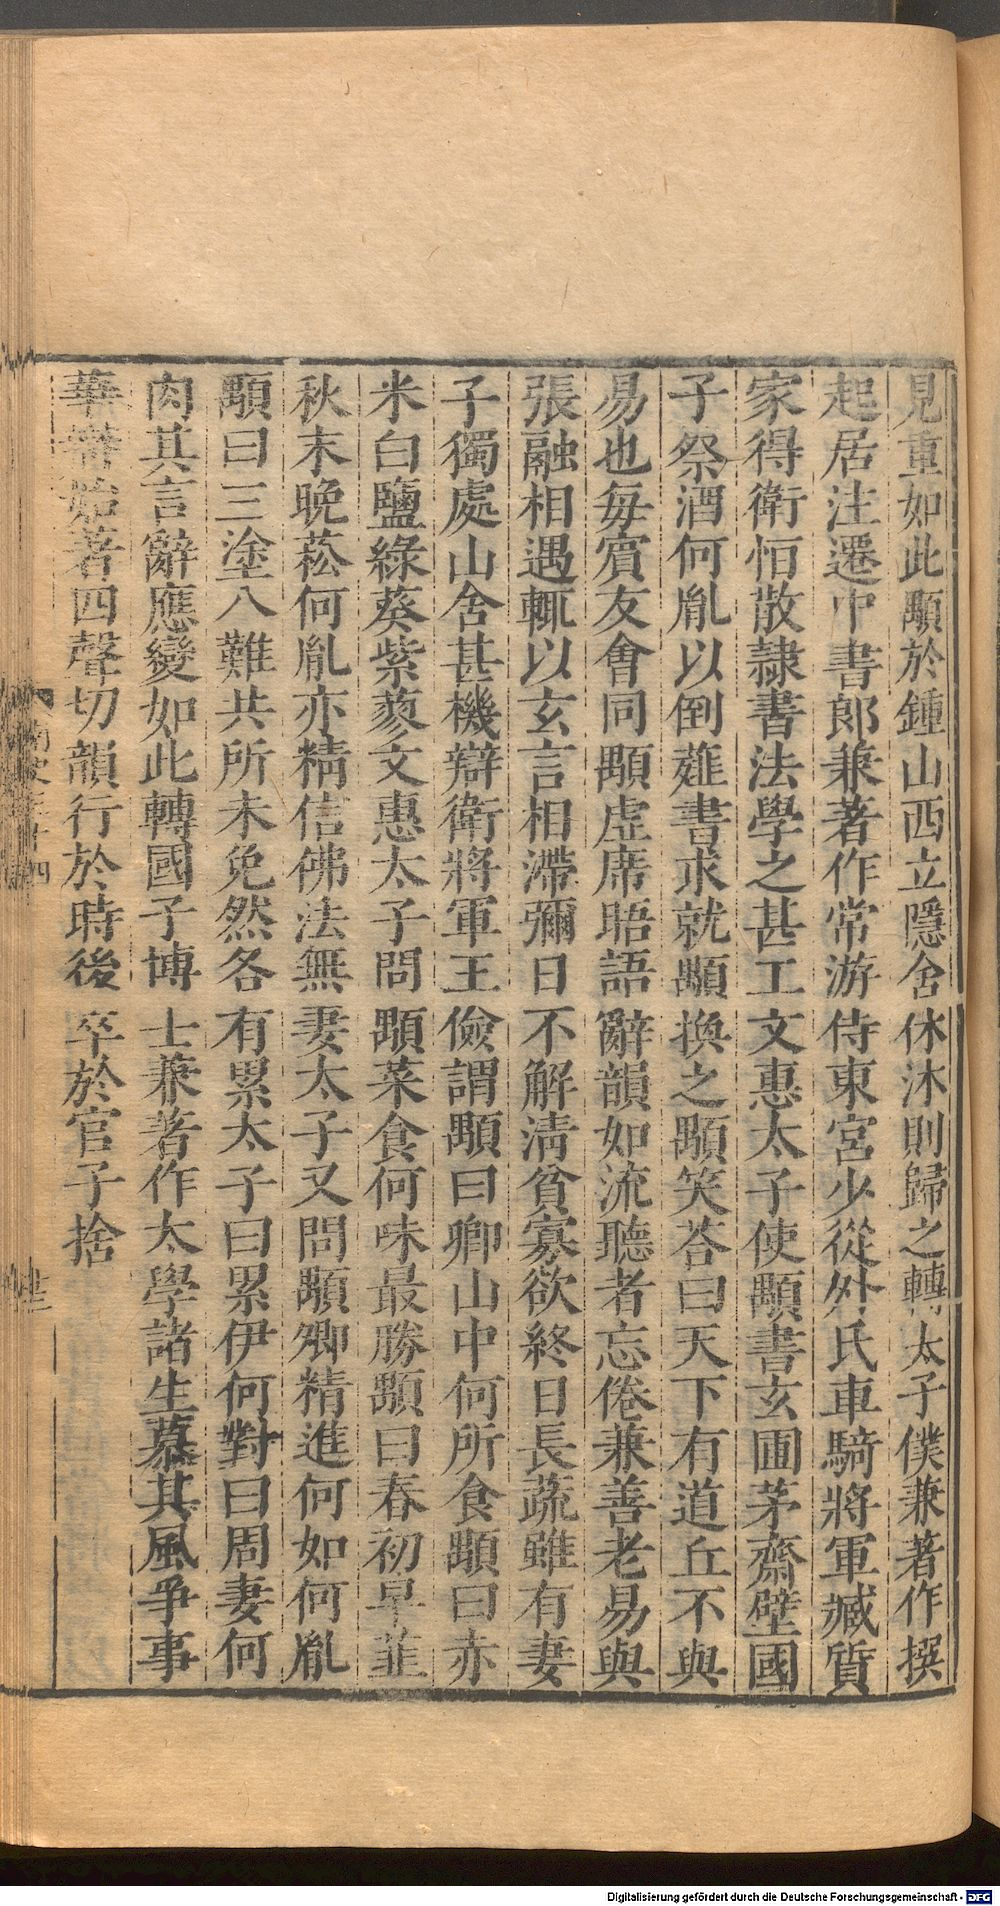 見重如此顒於鍾山西立隱舍休沐則歸之轉太子僕兼著作撰
起居注遷中書郎兼著作常游侍東宮少從外氏車騎將軍臧質
家得衛恒散隷書法學之甚工文惠太子使顒書玄圃茅齋壁國
子祭酒何胤以倒薤書求就顒換之顒笑荅曰天下有道丘不與
易也每賓友會同顒虚席晤語辭韻如流聽者忘倦兼善老易與
張融相遇輒以玄言相滯彌日不解淸貧寡欲終日長蔬雖有妻
子獨處山舍甚機辯衛將軍王儉謂顒曰卿山中何所食顒曰赤
米白鹽綠葵紫蓼文惠太子問顒菜食何味最勝顒曰春初早韮
秋末晚菘何胤亦精信佛法無妻太子又問顒卿精進何如何胤
顒曰三塗八難共所未免然各有累太子曰累伊何對曰周妻何
肉其言辭應變如此轉國子博士兼著作太學諸生慕其風爭事
華辯始著四聲切韻行於時後卒於官子捨
南史三十四
Digitalisierung gefördert durch die Deutsche Forschungsgemeinschaft - DFG